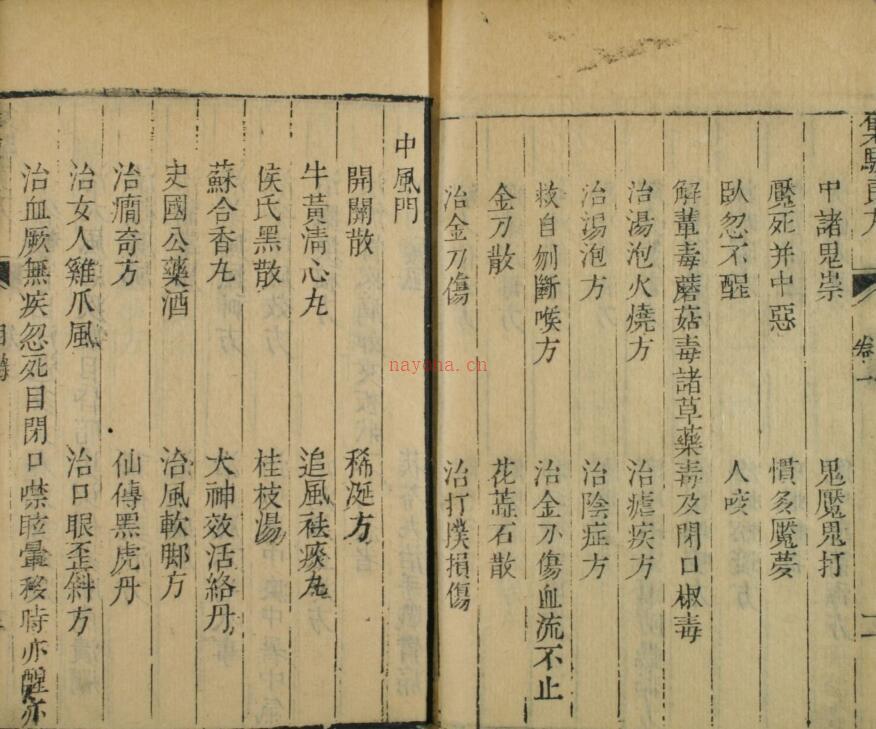 集驗良方
卷一
二
中諸鬼祟 鬼魘鬼打
魘死并中惡 慣多魘夢
臥忽不醒 人咬
解蕈毒蘑菇毒諸草藥毒及閉口椒毒
治湯泡火燒方 治瘧疾方
治湯泡方 治陰症方
救自刎斷喉方 治金刀傷血流不止
金刀散 花蕊石散
治金刀傷 治打撲損傷
中風門
開關散 稀涎方
牛黃清心丸 追風祛痰丸
侯氏黑散 桂枝湯
蘇合香丸 大神效活絡丹
史國公藥酒 治風軟脚方
治癇奇方 仙傳黑虎丹
治女人雞爪風 治口眼歪斜方
治血厥無疾忽死目閉口噤眩暈移時亦醒亦
nayona.cn